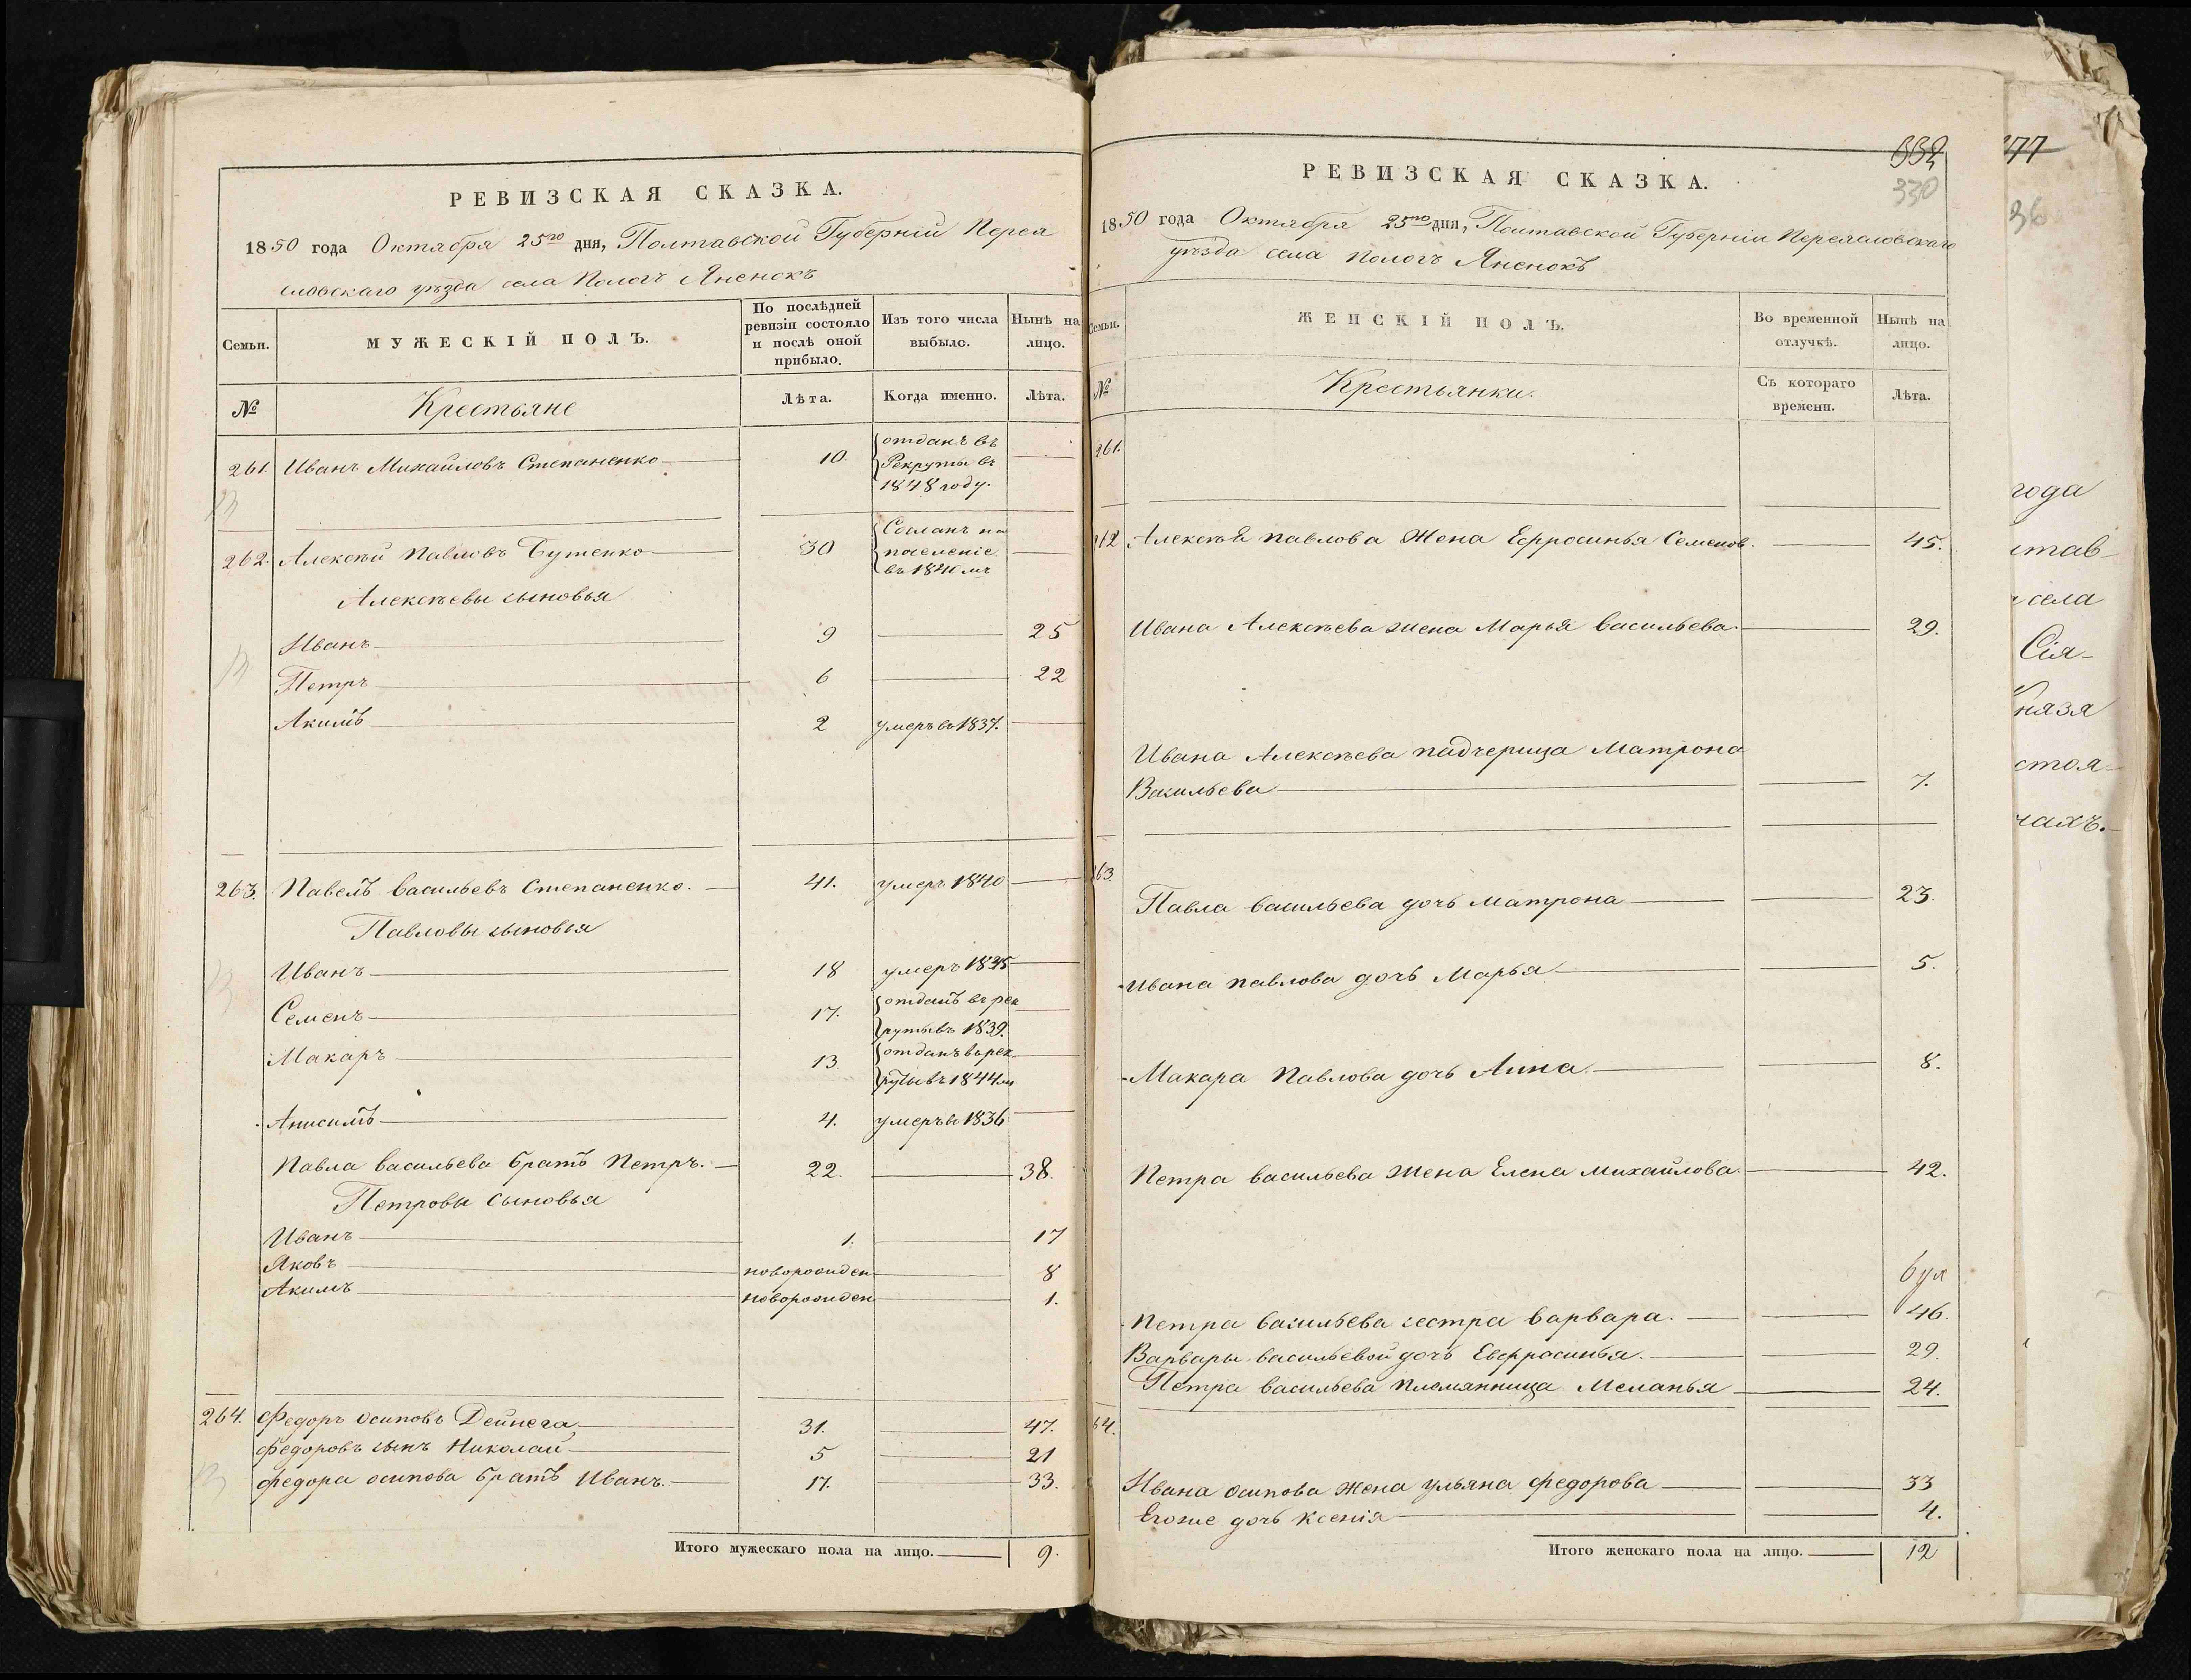 РЕВИЗСКАЯ СКАЗКА.
1850 года Октября 25го дня, Полтавской Губерніи Перея
словскаго уѣзда села Пологъ Яненокъ
Семьи.
МУЖЕСКІЙ ПОЛЪ.
По послѣдней ревизіи состояло и послѣ оной прибыло.
Изъ того числа выбыло.
Нынѣ на лицо.
№
Крестьяне
Лѣта.
Когда именно.
Лѣта.
261. Иванъ Михайловъ Степаненко 10. отданъ въ
Рекруты въ
1848 году.
262. Алексѣй Павловъ Бутенко 30 Сосланъ на
поселеніе
въ 1840 мъ
Алексѣевы сыновья
Иванъ 9 25
Петръ 6 22
Акимъ 2 умеръ въ 1837.
263. Павелъ Васильевъ Степаненко. 41. умеръ 1840
Павловы сыновья
Иванъ 18 умеръ 1845
Семенъ 17. отданъ въ рек
руты въ 1839.
Макаръ 13 отданъ въ рек
руты въ 1844 м
Анисимъ 4. умеръ в 1836
Павла Васильева братъ Петръ. 22. 38.
Петровы сыновья
Иванъ 1. 17
Яковъ новорожден 8
Акимъ новорожден 1.
264. Федоръ Осиповъ Дейнега, 31. 47.
Федоровъ сынъ Николай 5 21
Федора Осипова братъ Иванъ. 17. 33.
Итого мужескаго пола на лицо. 9.
332
330
РЕВИЗСКАЯ СКАЗКА.
1850 года Октября 25го дня, Полтавской Губерніи Переяславскаго
уѣзда села Пологъ Яненокъ
Семьи.
ЖЕНСКІЙ ПОЛЪ.
Во временной отлучкѣ.
Нынѣ на лицо.
№
Крестьянки.
Съ котораго времени.
Лѣта.
261.
262 Алексѣя Павлова Жена Ефросинья Семенов. 45.
Ивана Алексѣева жена Марья Васильева. 29.
Ивана Алексѣева падчерица Матрона
Васильева 7.
263
Павла Васильева дочь Матрона 23.
Ивана Павлова дочь Марья 5.
Макара Павлова дочь Анна. 8.
Петра Васильева жена Елена Михайлова. 42.
Петра Васильева сестра Варвара. 46.
Варвары Васильевой дочь Евфросинья. 29.
Петра Васильева племянница Меланья 24.
64.
Ивана Осипова жена Ульяна Федорова 33
Егоже дочь Ксенія 4.
Итого женскаго пола на лицо. 12
77
36
года
тав
села
Сія
Князя
стоя
чахъ.